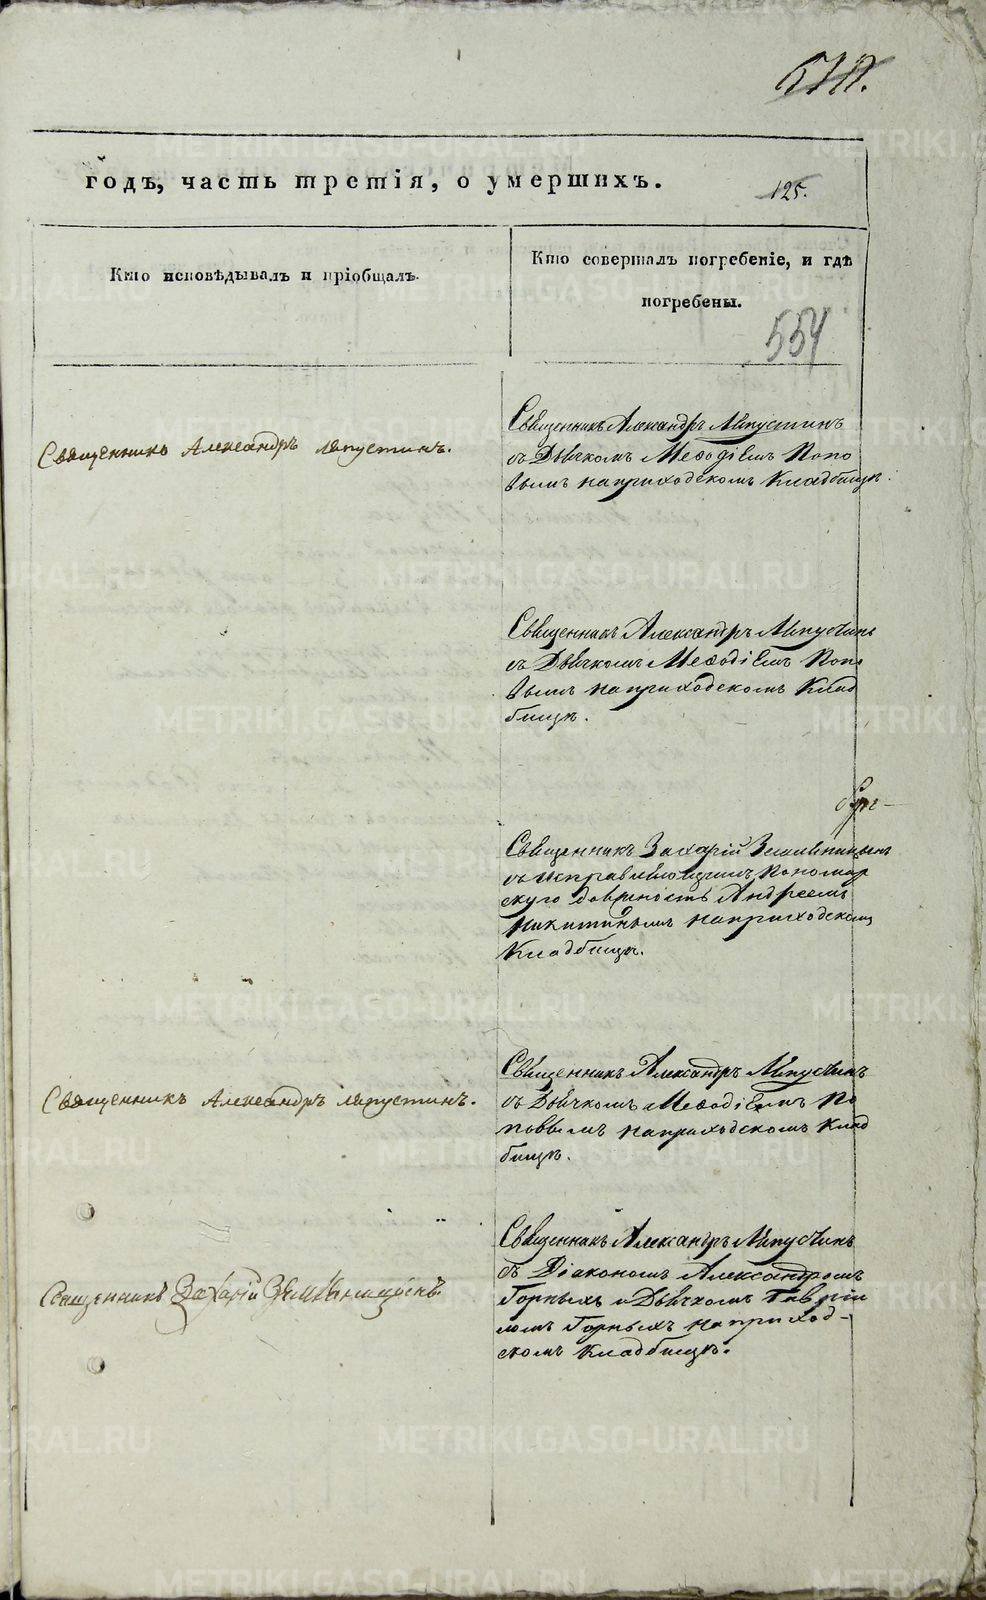 годъ, часть третія, о умершихъ.
125.
Кто исповѣдывалъ и пріобщалъ.
Кто совершалъ погребеніе, и гдѣ
погребены.
554
Священникъ Александръ Ляпустинъ.
Священникъ Александръ Ляпустинъ
съ Дьячкомъ Меѳодіемъ Попо
вымъ на приходскомъ Кладбищѣ.
Священникъ Александръ Ляпустинъ
съ Дьячкомъ Меѳодіемъ Попо
вымъ на приходскомъ Клад
бищѣ.
Священникъ Захарій
съ исправляющимъ Пономар
скую должность Андреемъ
Никитинымъ на приходскомъ
Кладбищѣ.
Священникъ Александръ Ляпустинъ.
Священникъ Александръ Ляпустинъ
съ Дьячкомъ Меѳодіемъ По
повымъ на приходскомъ Клад
бищѣ.
Священникъ Захарій
Священникъ Александръ Ляпустинъ
съ Діакономъ Александромъ
Горныхъ и Дьячкомъ Гаврiи
ломъ Горныхъ на приход-
скомъ Кладбищѣ.
METRIKI.GASO-URAL.RU